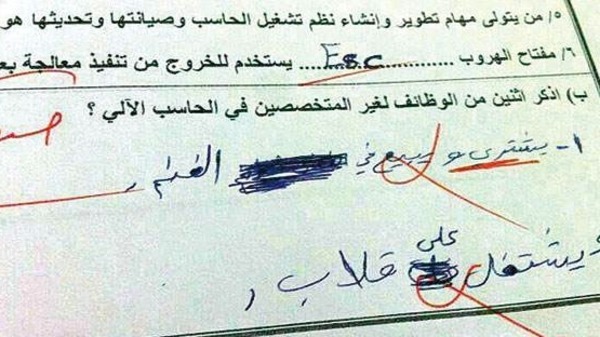 ٥/ من يتولى مهام تطوير وإنشاء نظم تشغيل الحاسب وصيانتها وتحديثها هو
٦/ مفتاح الهروب ..............Esc........ يستخدم للخروج من تنفيذ معالجة
ب) اذكر اثنين من الوظائف لغير المتخصصين في الحاسب الآلي ؟
١- يشتري و يبيع في الغنم
يشتغل على قلاب